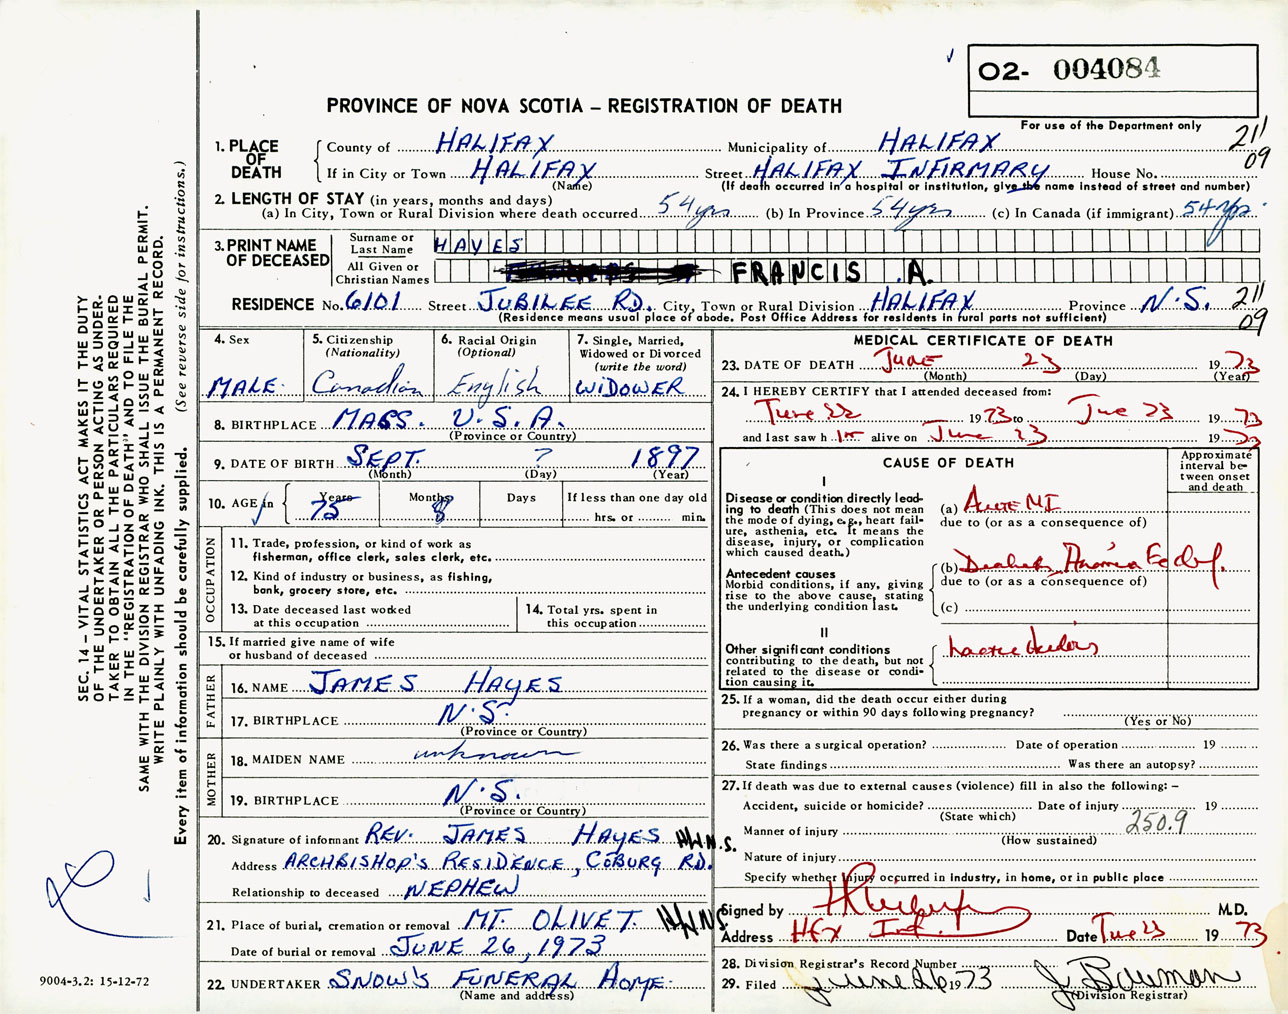 O2- 004084
PROVINCE OF NOVA SCOTIA – REGISTRATION OF DEATH
For use of the Department only
211
09
1. PLACE OF DEATH
County of HALIFAX Municipality of HALIFAX
If in City or Town HALIFAX Street HALIFAX INFIRMARY House No.
(Name) (If death occurred in a hospital or institution, give the name instead of street and number)
2. LENGTH OF STAY (in years, months and days)
(a) In City, Town or Rural Division where death occurred 54 yrs (b) In Province 54 yrs (c) In Canada (if immigrant) 54 yrs.
3. PRINT NAME OF DECEASED
Surname or Last Name HAYES
All Given or Christian Names FRANCIS A.
RESIDENCE No. 6101 Street JUBILEE RD. City, Town or Rural Division HALIFAX Province N.S. 211
(Residence means usual place of abode. Post Office Address for residents in rural parts not sufficient) 09
4. Sex
MALE
5. Citizenship
(Nationality)
Canadian
6. Racial Origin
(Optional)
English
7. Single, Married,
Widowed or Divorced
(write the word)
WIDOWER
8. BIRTHPLACE MASS. U.S.A.
(Province or Country)
9. DATE OF BIRTH SEPT. ? 1897
(Month) (Day) (Year)
10. AGE in Years 75 Months 8 Days If less than one day old
hrs. or min.
OCCUPATION
11. Trade, profession, or kind of work as
fisherman, office clerk, sales clerk, etc.
12. Kind of industry or business, as fishing,
bank, grocery store, etc.
13. Date deceased last worked
at this occupation
14. Total yrs. spent in
this occupation
15. If married give name of wife
or husband of deceased
FATHER
16. NAME JAMES HAYES
17. BIRTHPLACE N.S.
(Province or Country)
MOTHER
18. MAIDEN NAME unknown
19. BIRTHPLACE N.S.
(Province or Country)
20. Signature of informant REV. JAMES HAYES
Address ARCHBISHOP'S RESIDENCE, COBURG RD.
Relationship to deceased NEPHEW
21. Place of burial, cremation or removal MT. OLIVET
Date of burial or removal JUNE 26, 1973
22. UNDERTAKER SNOW'S FUNERAL HOME
(Name and address)
MEDICAL CERTIFICATE OF DEATH
23. DATE OF DEATH June 23 1973
(Month) (Day) (Year)
24. I HEREBY CERTIFY that I attended deceased from:
June 22 1973 to June 23 1973
and last saw h im alive on June 23 1973
CAUSE OF DEATH
Approximate
interval be-
tween onset
and death
I
Disease or condition directly lead-
ing to death (This does not mean
the mode of dying, e.g., heart fail-
ure, asthenia, etc. It means the
disease, injury, or complication
which caused death.)
(a) Acute MI
due to (or as a consequence of)
Antecedent causes
Morbid conditions, if any, giving
rise to the above cause, stating
the underlying condition last.
(b) Diabetes
due to (or as a consequence of)
(c)
II
Other significant conditions
contributing to the death, but not
related to the disease or condi-
tion causing it.
25. If a woman, did the death occur either during
pregnancy or within 90 days following pregnancy?
(Yes or No)
26. Was there a surgical operation? Date of operation 19
State findings Was there an autopsy?
27. If death was due to external causes (violence) fill in also the following: –
Accident, suicide or homicide? Date of injury 19
(State which)
250.9
Manner of injury
(How sustained)
Nature of injury
Specify whether injury occurred in industry, in home, or in public place
Signed by M.D.
Address Hfx Inf. Date June 23 1973
28. Division Registrar's Record Number
29. Filed June 26 1973 J. Bowman
(Division Registrar)
SEC. 14 – VITAL STATISTICS ACT MAKES IT THE DUTY
OF THE UNDERTAKER OR PERSON ACTING AS UNDER-
TAKER TO OBTAIN ALL THE PARTICULARS REQUIRED
IN THE "REGISTRATION OF DEATH" AND TO FILE THE
SAME WITH THE DIVISION REGISTRAR WHO SHALL ISSUE THE BURIAL PERMIT.
WRITE PLAINLY WITH UNFADING INK. THIS IS A PERMANENT RECORD.
Every item of information should be carefully supplied. (See reverse side for instructions.)
9004-3.2: 15-12-72